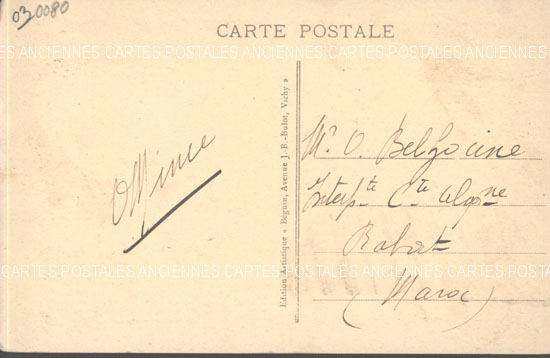 030080
CARTE POSTALE
ANCIENNES CARTES POSTALES ANCIENNES CARTES POSTALES ANCIENNES CARTES POSTALES
Edition Artistique « Béguin, Avenue J.-B.-Bulot, Vichy »
Mr O. Belgocine
Interpte Cte
Rabat
(Maroc)
CARTES POSTALES ANCIENNES CARTES POSTALES ANCIENNES CARTES POSTALES ANCIENNES